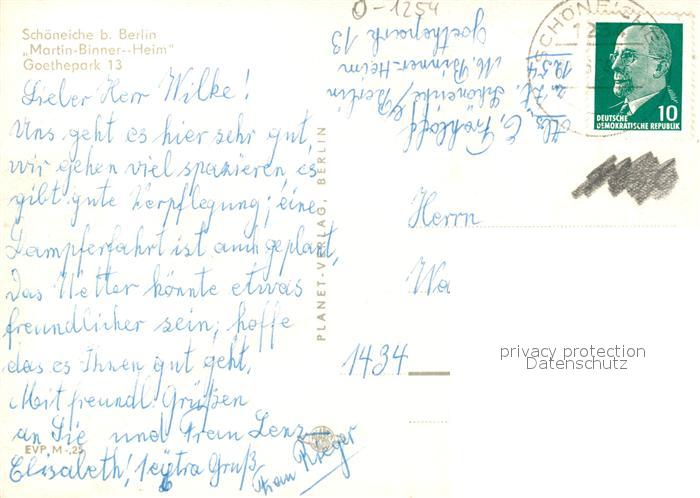 Schöneiche b. Berlin
„Martin-Binner--Heim"
Goethepark 13
Lieber Herr Wilke!
Uns geht es hier sehr gut,
wir gehen viel spazieren, es
gibt gute Verpflegung; eine
Dampferfahrt ist auch geplant,
Das Wetter könnte etwas
freundlicher sein; hoffe
das es Ihnen gut geht,
Mit freundl. Grüßen
an Sie und Frau Lenz
Elisabeth! Gruß
Frau Krüger
EVP M -,25
PLANET-VERLAG, BERLIN
O-1254
Abs. E. Fröhloff
z. Zt. Schöneiche/Berlin
1254
M. Binner-Heim
Goethepark 13
SCHÖNEICHE
DEUTSCHE
DEMOKRATISCHE REPUBLIK
10
Herrn
Wa
1434
privacy protection
Datenschutz